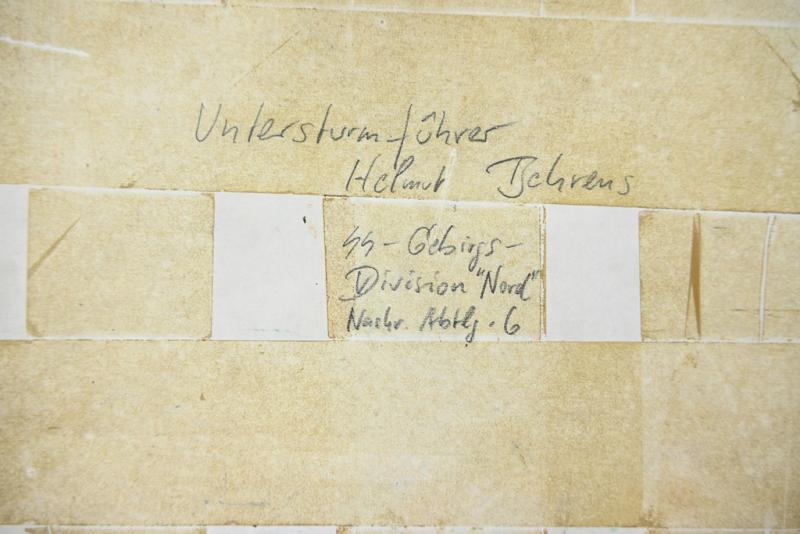 Untersturmführer
Helmut Behrens
SS-Gebirgs-
Division "Nord"
Nachr. Abtlg. 6